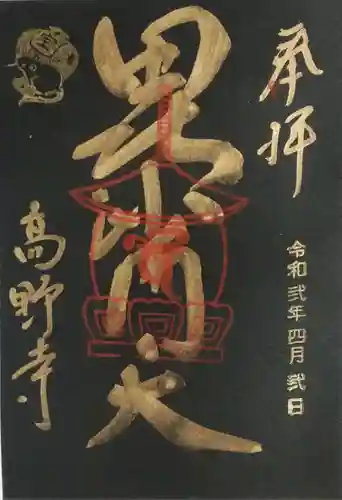 奉拝
令和弐年四月弐日
毘沙門天
高野寺